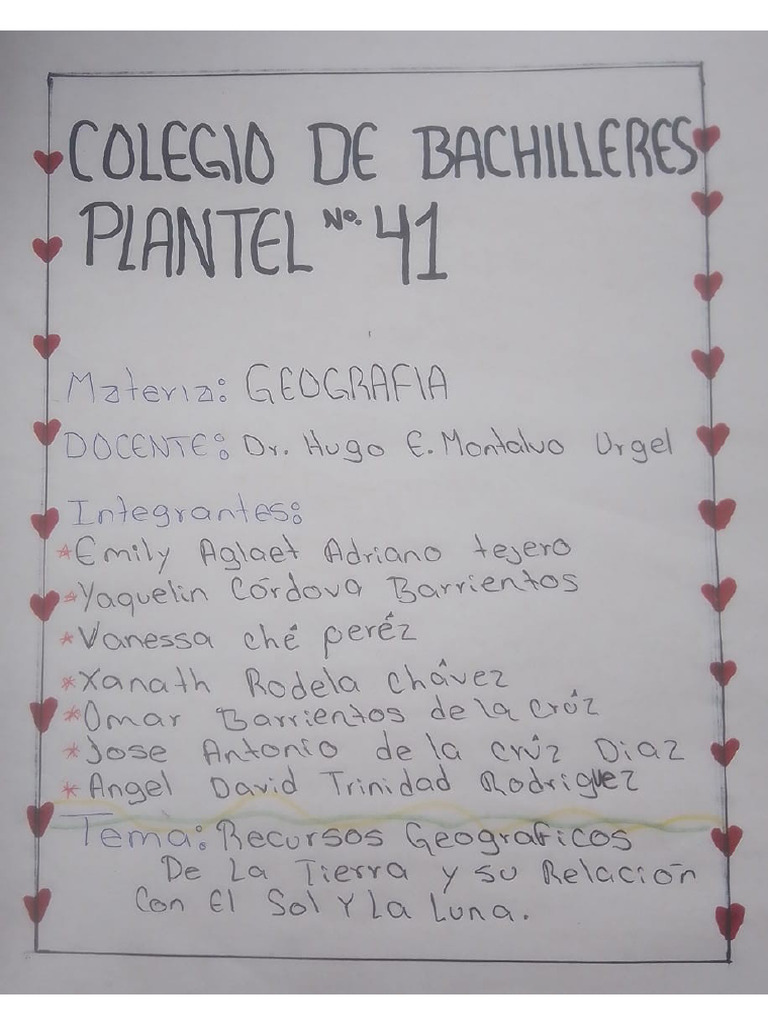 COLEGIO DE BACHILLERES
PLANTEL No. 41
Materia: GEOGRAFIA
DOCENTE: Dr. Hugo E. Montalvo Urgel
Integrantes:
*Emily Aglaet Adriano tejero
*Yaquelin Córdova Barrientos
*Vanessa ché peréz
*Xanath Rodela chávez
*Omar Barrientos de la crúz
*Jose Antonio de la crúz Diaz
*Angel David Trinidad Rodriguez
Tema: Recursos Geograficos
De La Tierra y su Relación
Con El Sol Y La Luna.